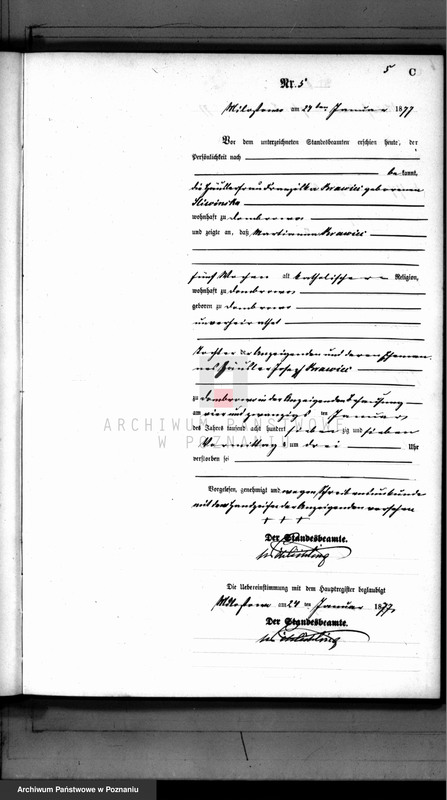 5 C
Nr. 5
Milostowo am 24ten Januar 1877
Vor dem unterzeichneten Standesbeamten erschien heute, der
Persönlichkeit nach
bekannt,
die Häuslerfrau Franziska Krawiec geborenen
Sliwinska
wohnhaft zu Dombrowo
und zeigte an, daß Marianna Krawiec
fünf Wochen alt katholischer Religion,
wohnhaft zu Dombrowo
geboren zu Dombrowo
unverheirathet
Tochter der Anzeigenden und deren Ehemannes
Häusler Josef Krawiec
zu Dombrowo in der Anzeigenden Behausung
am vier und zwanzigsten Januar
des Jahres tausend acht hundert siebenzig und sieben
Vormittags um drei Uhr
verstorben sei
Vorgelesen, genehmigt und wegen Schreibensunkunde
mit dem Handzeichen der Anzeigenden versehen
+ + +
Der Standesbeamte.
Die Uebereinstimmung mit dem Hauptregister beglaubigt
Milostowo am 24ten Januar 1877
Der Standesbeamte.
ARCHIWUM PAŃSTWOWE
W POZNANIU
Archiwum Państwowe w Poznaniu